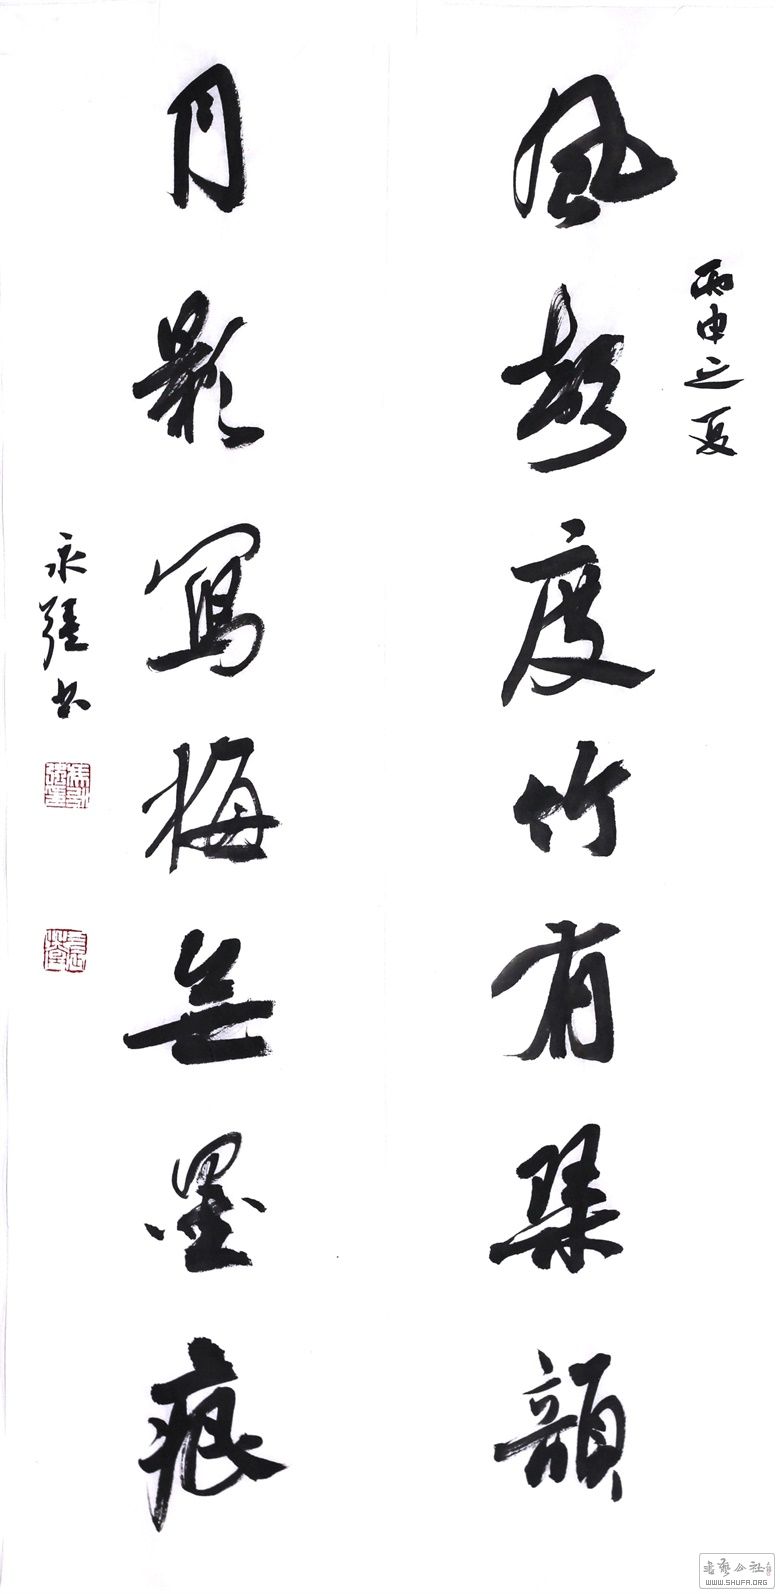 丙申之夏
風聲度竹有琴韻
月影寫梅無墨痕
永強書
書藝公社
WWW.SHUFA.ORG